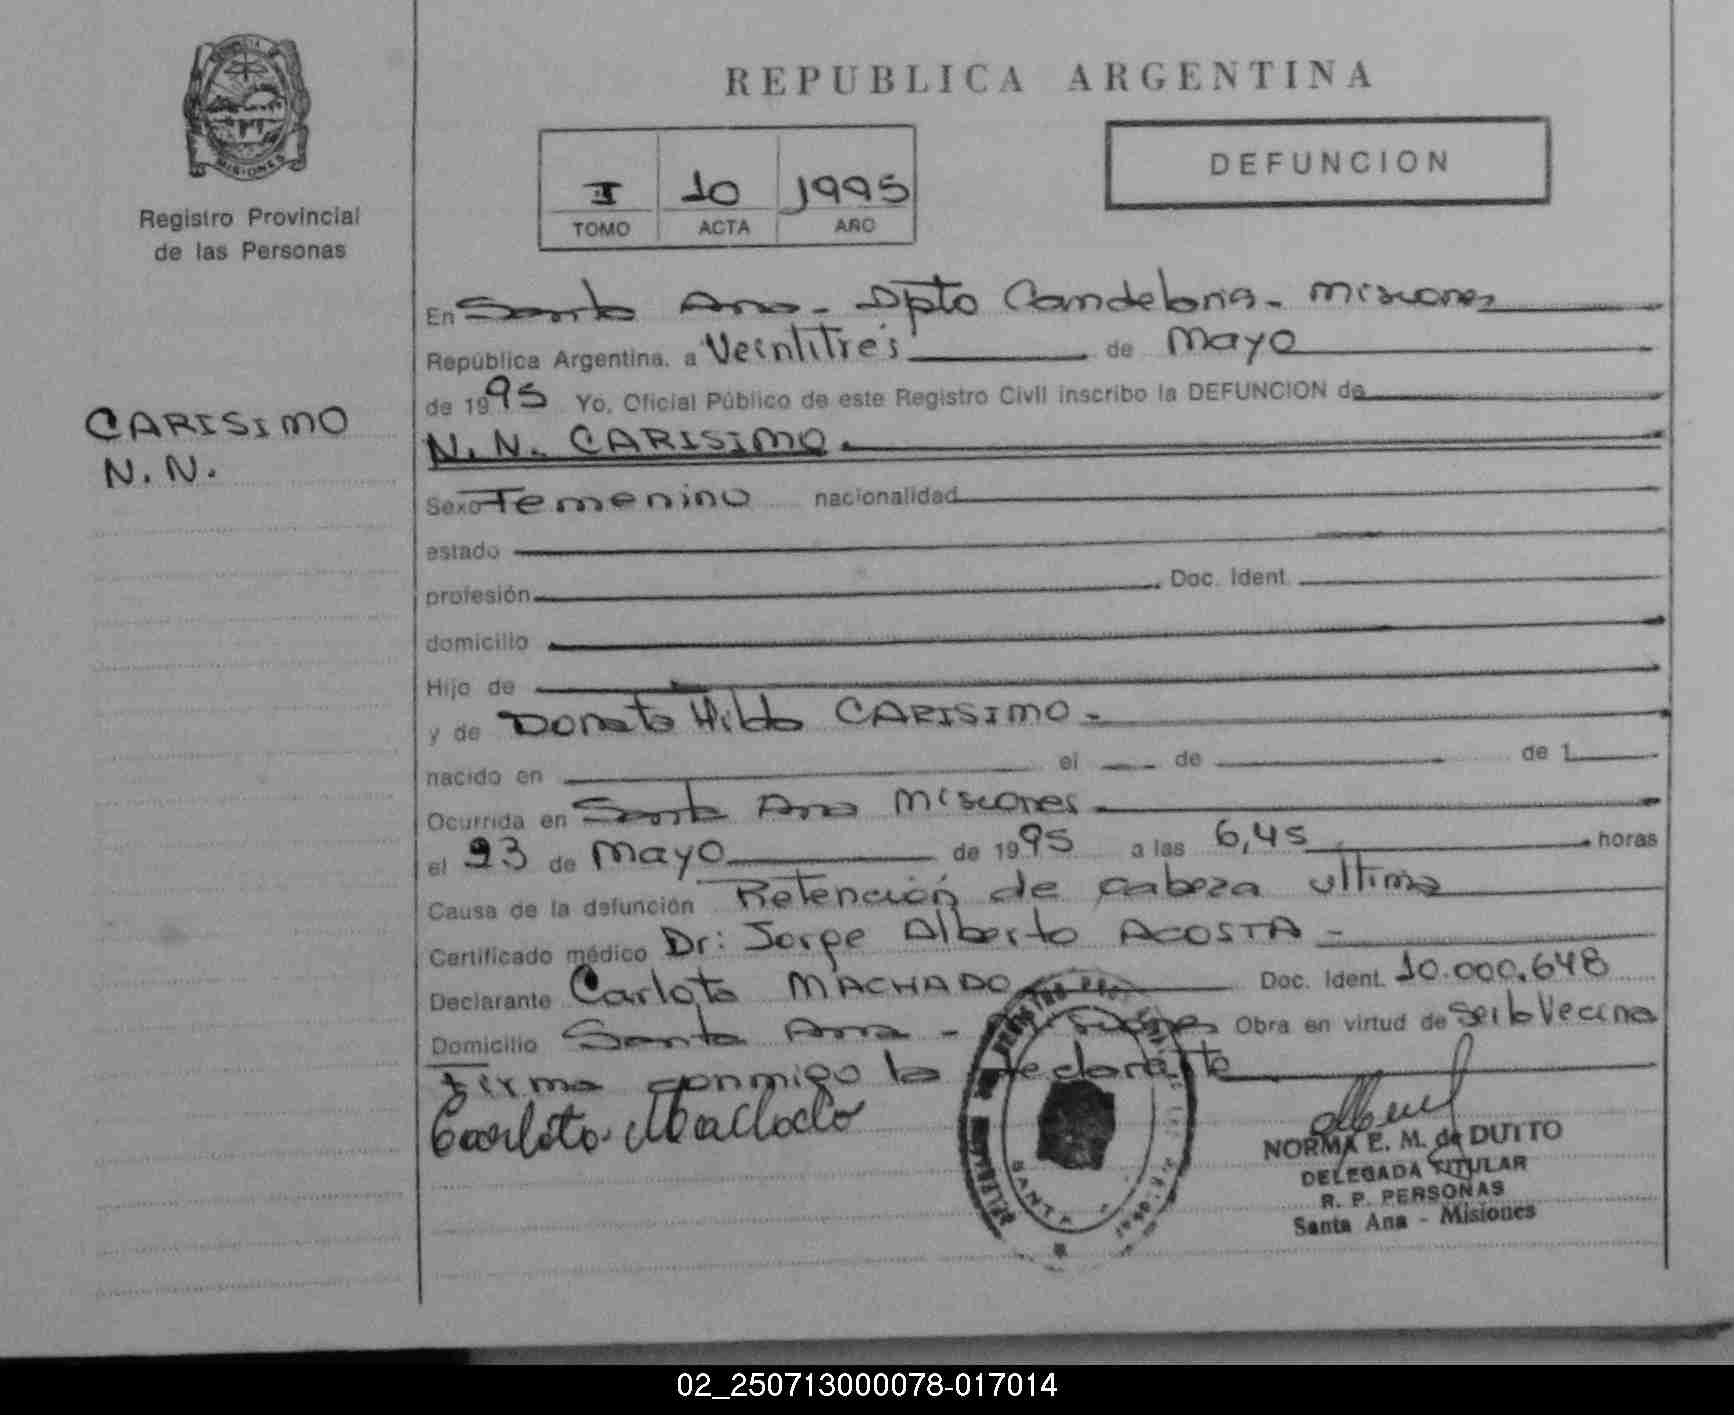 REPUBLICA ARGENTINA
MISIONES
Registro Provincial
de las Personas
I 10 1995
TOMO ACTA AÑO
DEFUNCION
CARISIMO
N.N.
En Santa Ana - Dpto Candelaria - Misiones
República Argentina, a Veintitrés de Mayo
de 1995 Yo, Oficial Público de este Registro Civil inscribo la DEFUNCION de
N.N. CARISIMO.
Sexo Femenino nacionalidad
estado
profesión Doc. Ident.
domicilio
Hijo de
y de Donata Hilda CARISIMO -
nacido en el de de 1
Ocurrida en Santa Ana Misiones
el 23 de Mayo de 1995 a las 6,45 horas
Causa de la defunción Retención de cabeza ultima
Certificado médico Dr: Jorge Alberto ACOSTA -
Declarante Carlota MACHADO Doc. Ident. 10.000.648
Domicilio Santa Ana - Obra en virtud de Ser la Vecina
firma conmigo la declarante
Carlota Machado
SANTA
NORMA E. M. de DUTTO
DELEGADA TITULAR
R. P. PERSONAS
Santa Ana - Misiones
02_250713000078-017014